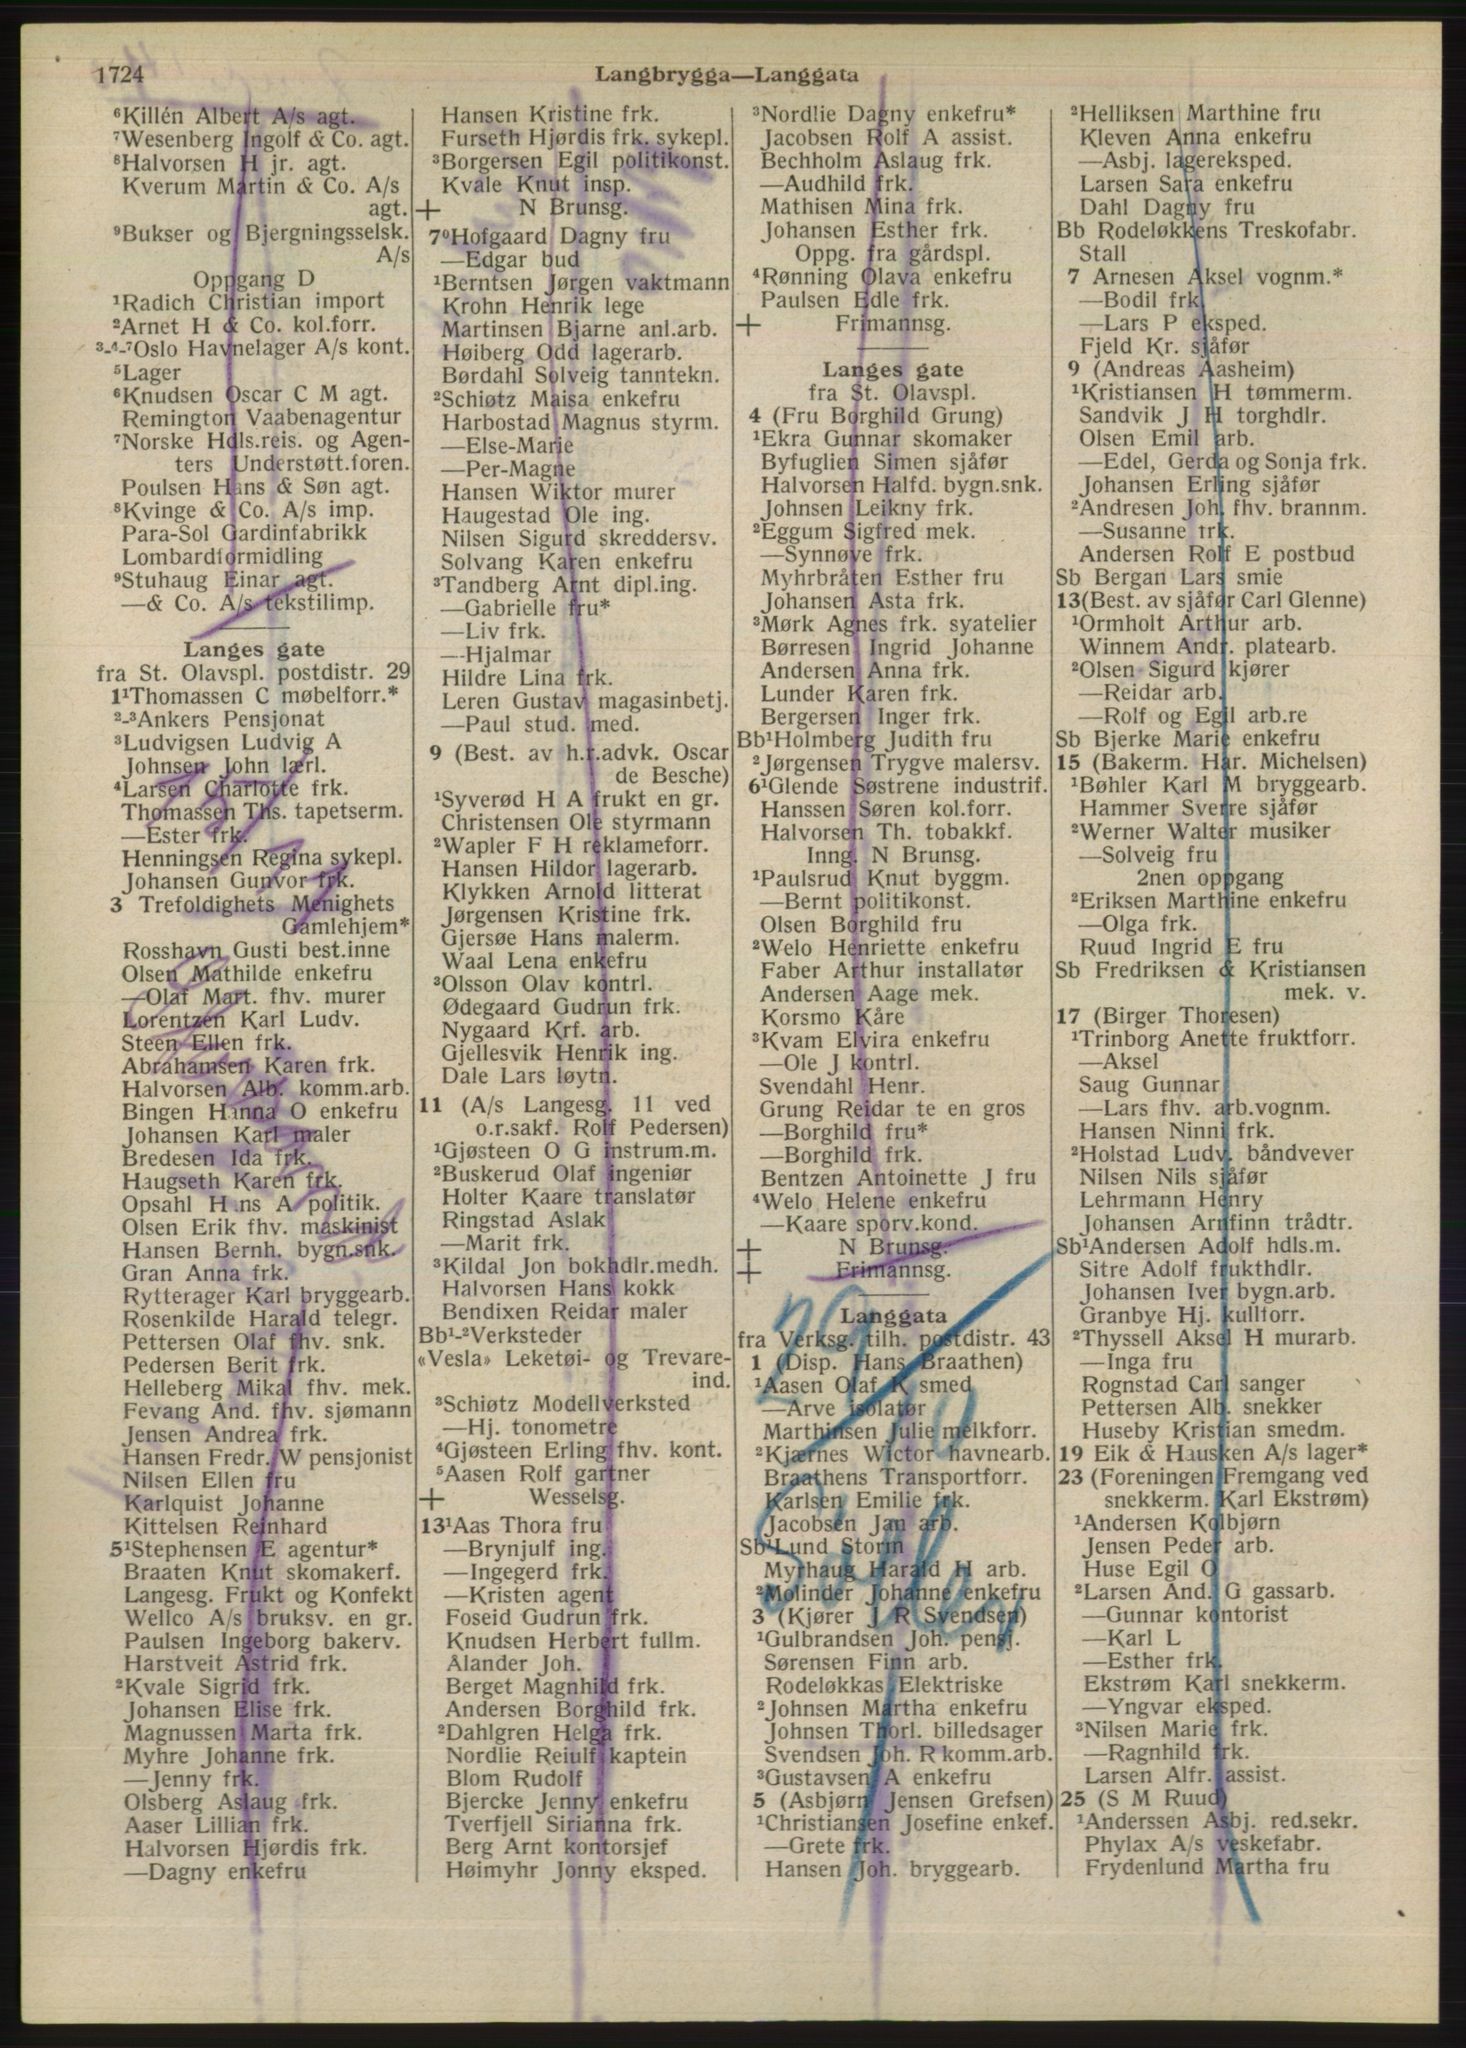 1724
Langbrygga—Langgata
⁶Killén Albert A/s agt.
⁷Wesenberg Ingolf & Co. agt.
⁸Halvorsen H jr. agt.
Kverum Martin & Co. A/s
agt.
⁹Bukser og Bjergningsselsk.
A/s
Oppgang D
¹Radich Christian import
²Arnet H & Co. kol.forr.
³-⁴-⁷Oslo Havnelager A/s kont.
⁵Lager
⁶Knudsen Oscar C M agt.
Remington Vaabenagentur
⁷Norske Hdls.reis. og Agen-
ters Understøtt.foren.
Poulsen Hans & Søn agt.
⁸Kvinge & Co. A/s imp.
Para-Sol Gardinfabrikk
Lombardformidling
⁹Stuhaug Einar agt.
—& Co. A/s tekstilimp.
Langes gate
fra St. Olavspl. postdistr. 29
1¹Thomassen C møbelforr.*
²-³Ankers Pensjonat
³Ludvigsen Ludvig A
Johnsen John lærl.
⁴Larsen Charlotte frk.
Thomassen Ths. tapetserm.
—Ester frk.
Henningsen Regina sykepl.
Johansen Gunvor frk.
3 Trefoldighets Menighets
Gamlehjem*
Rosshavn Gusti best.inne
Olsen Mathilde enkefru
—Olaf Mart. fhv. murer
Lorentzen Karl Ludv.
Steen Ellen frk.
Abrahamsen Karen frk.
Halvorsen Alb. komm.arb.
Bingen Hanna O enkefru
Johansen Karl maler
Bredesen Ida frk.
Haugseth Karen frk.
Opsahl Hans A politik.
Olsen Erik fhv. maskinist
Hansen Bernh. bygn.snk.
Gran Anna frk.
Rytterager Karl bryggearb.
Rosenkilde Harald telegr.
Pettersen Olaf fhv. snk.
Pedersen Berit frk.
Helleberg Mikal fhv. mek.
Fevang And. fhv. sjømann
Jensen Andrea frk.
Hansen Fredr. W pensjonist
Nilsen Ellen fru
Karlquist Johanne
Kittelsen Reinhard
5¹Stephensen E agentur*
Braaten Knut skomakerf.
Langesg. Frukt og Konfekt
Wellco A/s bruksv. en gr.
Paulsen Ingeborg bakerv.
Harstveit Astrid frk.
²Kvale Sigrid frk.
Johansen Elise frk.
Magnussen Marta frk.
Myhre Johanne frk.
—Jenny frk.
Olsberg Aslaug frk.
Aaser Lillian frk.
Halvorsen Hjørdis frk.
—Dagny enkefru
Hansen Kristine frk.
Furseth Hjørdis frk. sykepl.
³Borgersen Egil politikonst.
Kvale Knut insp.
+ N Brunsg.
7⁰Hofgaard Dagny fru
—Edgar bud
¹Berntsen Jørgen vaktmann
Krohn Henrik lege
Martinsen Bjarne anl.arb.
Høiberg Odd lagerarb.
Børdahl Solveig tanntekn.
²Schiøtz Maisa enkefru
Harbostad Magnus styrm.
—Else-Marie
—Per-Magne
Hansen Wiktor murer
Haugestad Ole ing.
Nilsen Sigurd skreddersv.
Solvang Karen enkefru
³Tandberg Arnt dipl.ing.
—Gabrielle fru*
—Liv frk.
—Hjalmar
Hildre Lina frk.
Leren Gustav magasinbetj.
—Paul stud. med.
9 (Best. av h.r.advk. Oscar
de Besche)
¹Syverød H A frukt en gr.
Christensen Ole styrmann
²Wapler F H reklameforr.
Hansen Hildor lagerarb.
Klykken Arnold litterat
Jørgensen Kristine frk.
Gjersøe Hans malerm.
Waal Lena enkefru
³Olsson Olav kontrl.
Ødegaard Gudrun frk.
Nygaard Krf. arb.
Gjellesvik Henrik ing.
Dale Lars løytn.
11 (A/s Langesg. 11 ved
o.r.sakf. Rolf Pedersen)
¹Gjøsteen O G instrum.m.
²Buskerud Olaf ingeniør
Holter Kaare translatør
Ringstad Aslak
—Marit frk.
³Kildal Jon bokhdlr.medh.
Halvorsen Hans kokk
Bendixen Reidar maler
Bb¹-²Verksteder
«Vesla» Leketøi- og Trevare-
ind.
³Schiøtz Modellverksted
—Hj. tonometre
⁴Gjøsteen Erling fhv. kont.
⁵Aasen Rolf gartner
+ Wesselsg.
13¹Aas Thora fru
—Brynjulf ing.
—Ingegerd frk.
—Kristen agent
Foseid Gudrun frk.
Knudsen Herbert fullm.
Ålander Joh.
Berget Magnhild frk.
Andersen Borghild frk.
²Dahlgren Helga frk.
Nordlie Reiulf kaptein
Blom Rudolf
Bjercke Jenny enkefru
Tverfjell Sirianna frk.
Berg Arnt kontorsjef
Høimyhr Jonny eksped.
³Nordlie Dagny enkefru*
Jacobsen Rolf A assist.
Bechholm Aslaug frk.
—Audhild frk.
Mathisen Mina frk.
Johansen Esther frk.
Oppg. fra gårdspl.
⁴Rønning Olava enkefru
Paulsen Edle frk.
+ Frimannsg.
Langes gate
fra St. Olavspl.
4 (Fru Borghild Grung)
¹Ekra Gunnar skomaker
Byfuglien Simen sjåfør
Halvorsen Halfd. bygn.snk.
Johnsen Leikny frk.
²Eggum Sigfred mek.
—Synnøve frk.
Myhrbråten Esther fru
Johansen Asta frk.
³Mørk Agnes frk. syatelier
Børresen Ingrid Johanne
Andersen Anna frk.
Lunder Karen frk.
Bergersen Inger frk.
Bb¹Holmberg Judith fru
²Jørgensen Trygve malersv.
6¹Glende Søstrene industrif.
Hanssen Søren kol.forr.
Halvorsen Th. tobakkf.
Inng. N Brunsg.
¹Paulsrud Knut byggm.
—Bernt politikonst.
Olsen Borghild fru
²Welo Henriette enkefru
Faber Arthur installatør
Andersen Aage mek.
Korsmo Kåre
³Kvam Elvira enkefru
—Ole J kontrl.
Svendahl Henr.
Grung Reidar te en gros
—Borghild fru*
—Borghild frk.
Bentzen Antoinette J fru
⁴Welo Helene enkefru
—Kaare sporv.kond.
+ N Brunsg.
+ Frimannsg.
Langgata
fra Verksg. tilh. postdistr. 43
1 (Disp. Hans Braathen)
¹Aasen Olaf K smed
—Arve isolatør
Marthinsen Julie melkforr.
²Kjærnes Wictor havnearb.
Braathens Transportforr.
Karlsen Emilie frk.
Jacobsen Jan arb.
Sb¹Lund Storm
Myrhaug Harald H arb.
²Molinder Johanne enkefru
3 (Kjører J R Svendsen)
¹Gulbrandsen Joh. pensj.
Sørensen Finn arb.
Rodeløkkas Elektriske
²Johnsen Martha enkefru
Johnsen Thorl. billedsager
Svendsen Joh. R komm.arb.
³Gustavsen A enkefru
5 (Asbjørn Jensen Grefsen)
¹Christiansen Josefine enkef.
—Grete frk.
Hansen Joh. bryggearb.
²Helliksen Marthine fru
Kleven Anna enkefru
—Asbj. lagereksped.
Larsen Sara enkefru
Dahl Dagny fru
Bb Rodeløkkens Treskofabr.
Stall
7 Arnesen Aksel vognm.*
—Bodil frk.
—Lars P eksped.
Fjeld Kr. sjåfør
9 (Andreas Aasheim)
¹Kristiansen H tømmerm.
Sandvik J H torghdlr.
Olsen Emil arb.
—Edel, Gerda og Sonja frk.
Johansen Erling sjåfør
²Andresen Joh. fhv. brannm.
—Susanne frk.
Andersen Rolf E postbud
Sb Bergan Lars smie
13(Best. av sjåfør Carl Glenne)
¹Ormholt Arthur arb.
Winnem Andr. platearb.
²Olsen Sigurd kjører
—Reidar arb.
—Rolf og Egil arb.re
Sb Bjerke Marie enkefru
15 (Bakerm. Har. Michelsen)
¹Bøhler Karl M bryggearb.
Hammer Sverre sjåfør
²Werner Walter musiker
—Solveig fru
2nen oppgang
²Eriksen Marthine enkefru
—Olga frk.
Ruud Ingrid E fru
Sb Fredriksen & Kristiansen
mek. v.
17 (Birger Thoresen)
¹Trinborg Anette fruktforr.
—Aksel
Saug Gunnar
—Lars fhv. arb.vognm.
Hansen Ninni frk.
²Holstad Ludv. båndvever
Nilsen Nils sjåfør
Lehrmann Henry
Johansen Arnfinn trådtr.
Sb¹Andersen Adolf hdls.m.
Sitre Adolf frukthdlr.
Johansen Iver bygn.arb.
Granbye Hj. kullforr.
²Thyssell Aksel H murarb.
—Inga fru
Rognstad Carl sanger
Pettersen Alb. snekker
Huseby Kristian smedm.
19 Eik & Hausken A/s lager*
23 (Foreningen Fremgang ved
snekkerm. Karl Ekstrøm)
¹Andersen Kolbjørn
Jensen Peder arb.
Huse Egil O
²Larsen And. G gassarb.
—Gunnar kontorist
—Karl L
—Esther frk.
Ekstrøm Karl snekkerm.
—Yngvar eksped.
³Nilsen Marie frk.
—Ragnhild frk.
Larsen Alfr. assist.
25 (S M Ruud)
¹Anderssen Asbj. red.sekr.
Phylax A/s veskefabr.
Frydenlund Martha fru